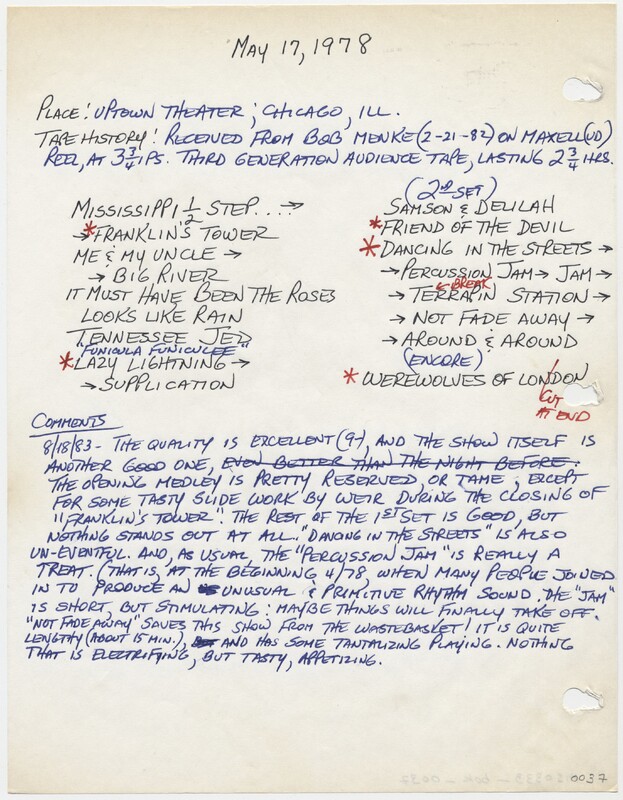 MAY 17, 1978
PLACE: UPTOWN THEATER; CHICAGO, ILL.
TAPE HISTORY: RECEIVED FROM BOB MENKE (2-21-82) ON MAXELL (UD)
REEL, AT 3 3/4 IPS. THIRD GENERATION AUDIENCE TAPE, LASTING 2 3/4 HRS.
MISSISSIPPI 1/2 STEP.... →
* → FRANKLIN'S TOWER
ME & MY UNCLE →
→ BIG RIVER
IT MUST HAVE BEEN THE ROSES
LOOKS LIKE RAIN
TENNESSEE JED
"FUNICULA FUNICULEE"
* LAZY LIGHTNING →
→ SUPPLICATION
(2nd SET)
SAMSON & DELILAH
* FRIEND OF THE DEVIL
* DANCING IN THE STREETS →
→ PERCUSSION JAM → JAM →
← BREAK
→ TERRAPIN STATION →
→ NOT FADE AWAY →
→ AROUND & AROUND
(ENCORE)
* WEREWOLVES OF LONDON
CUT
AT END
COMMENTS
8/18/83 - THE QUALITY IS EXCELLENT (9-), AND THE SHOW ITSELF IS
ANOTHER GOOD ONE, EVEN BETTER THAN THE NIGHT BEFORE.
THE OPENING MEDLEY IS PRETTY RESERVED, OR TAME, EXCEPT
FOR SOME TASTY SLIDE WORK BY WEIR DURING THE CLOSING OF
"FRANKLIN'S TOWER". THE REST OF THE 1ST SET IS GOOD, BUT
NOTHING STANDS OUT AT ALL. "DANCING IN THE STREETS" IS ALSO
UN-EVENTFUL. AND, AS USUAL, THE "PERCUSSION JAM" IS REALLY A
TREAT. (THAT IS, AT THE BEGINNING 4/78, WHEN MANY PEOPLE JOINED
IN TO PRODUCE AN UNUSUAL & PRIMITIVE RHYTHM SOUND. THE "JAM"
IS SHORT, BUT STIMULATING: MAYBE THINGS WILL FINALLY TAKE OFF.
"NOT FADE AWAY" SAVES THIS SHOW FROM THE WASTEBASKET! IT IS QUITE
LENGTHY (ABOUT 15 MIN.), AND HAS SOME TANTALIZING PLAYING. NOTHING
THAT IS ELECTRIFYING, BUT TASTY, APPETIZING.
0037